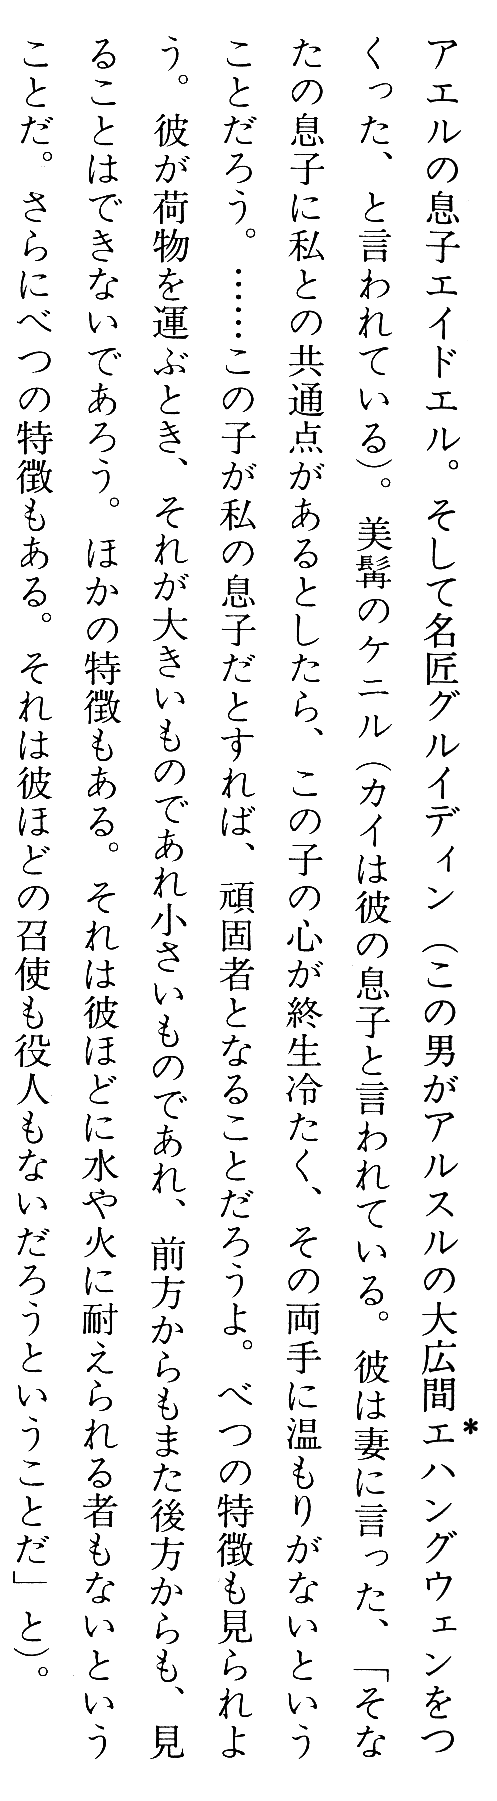 アエルの息子エイドエル。そして名匠グルイディン（この男がアルスルの大広間エハングウェン*をつ
くった、と言われている）。美髯のケニル（カイは彼の息子と言われている。彼は妻に言った、「そな
たの息子に私との共通点があるとしたら、この子の心が終生冷たく、その両手に温もりがないという
ことだろう。……この子が私の息子だとすれば、頑固者となることだろうよ。べつの特徴も見られよ
う。彼が荷物を運ぶとき、それが大きいものであれ小さいものであれ、前方からもまた後方からも、見
ることはできないであろう。ほかの特徴もある。それは彼ほどに水や火に耐えられる者もないという
ことだ。さらにべつの特徴もある。それは彼ほどの召使も役人もないだろうということだ」と）。